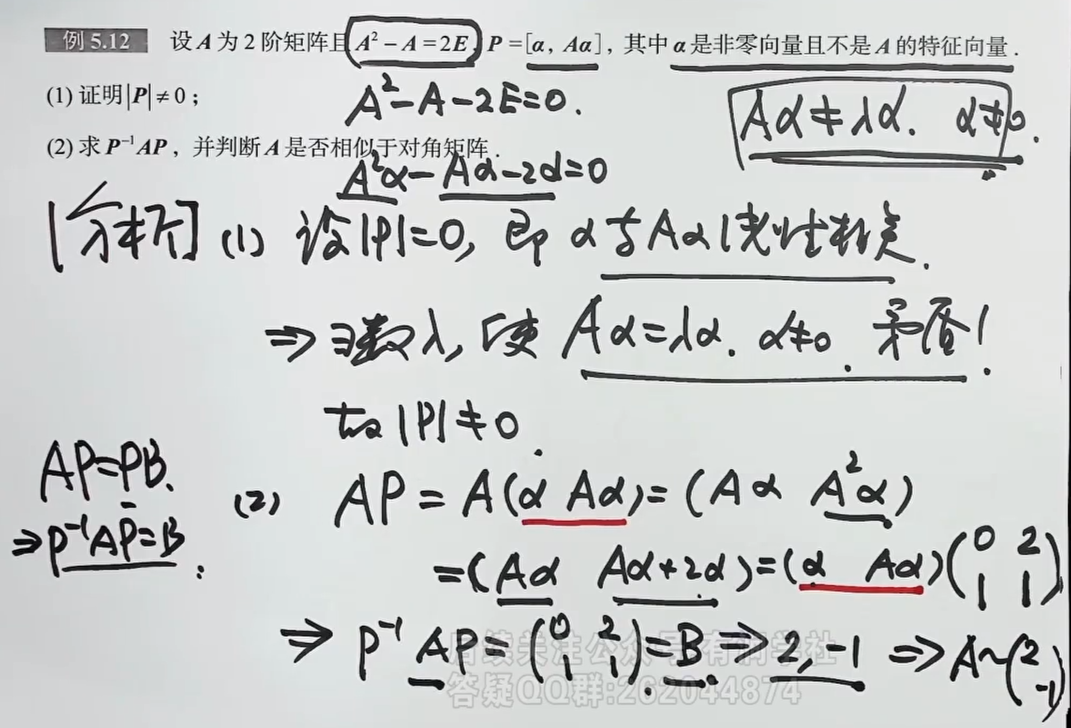 例 5.12 设 A 为 2 阶矩阵且 A² − A = 2E, P = [α, Aα], 其中 α 是非零向量且不是 A 的特征向量.
(1) 证明 |P| ≠ 0;
A²−A−2E=0.
Aα≠λα. α≠0.
(2) 求 P⁻¹AP, 并判断 A 是否相似于对角矩阵.
A²α−Aα−2α=0
[分析] (1) 设|P|=0, 即 α与Aα线性相关.
⇒ ∃数λ, 使 Aα=λα. α≠0. 矛盾!
故|P|≠0.
AP=PB.
⇒P⁻¹AP=B
(2) AP = A(α Aα)=(Aα A²α)
=(Aα Aα+2α)=(α Aα)(0 2
1 1)
⇒ P⁻¹AP=(0 2
1 1)=B⇒2,−1 ⇒A~(2
−1)
后续关注公众号有制学社
答疑QQ群:262044874